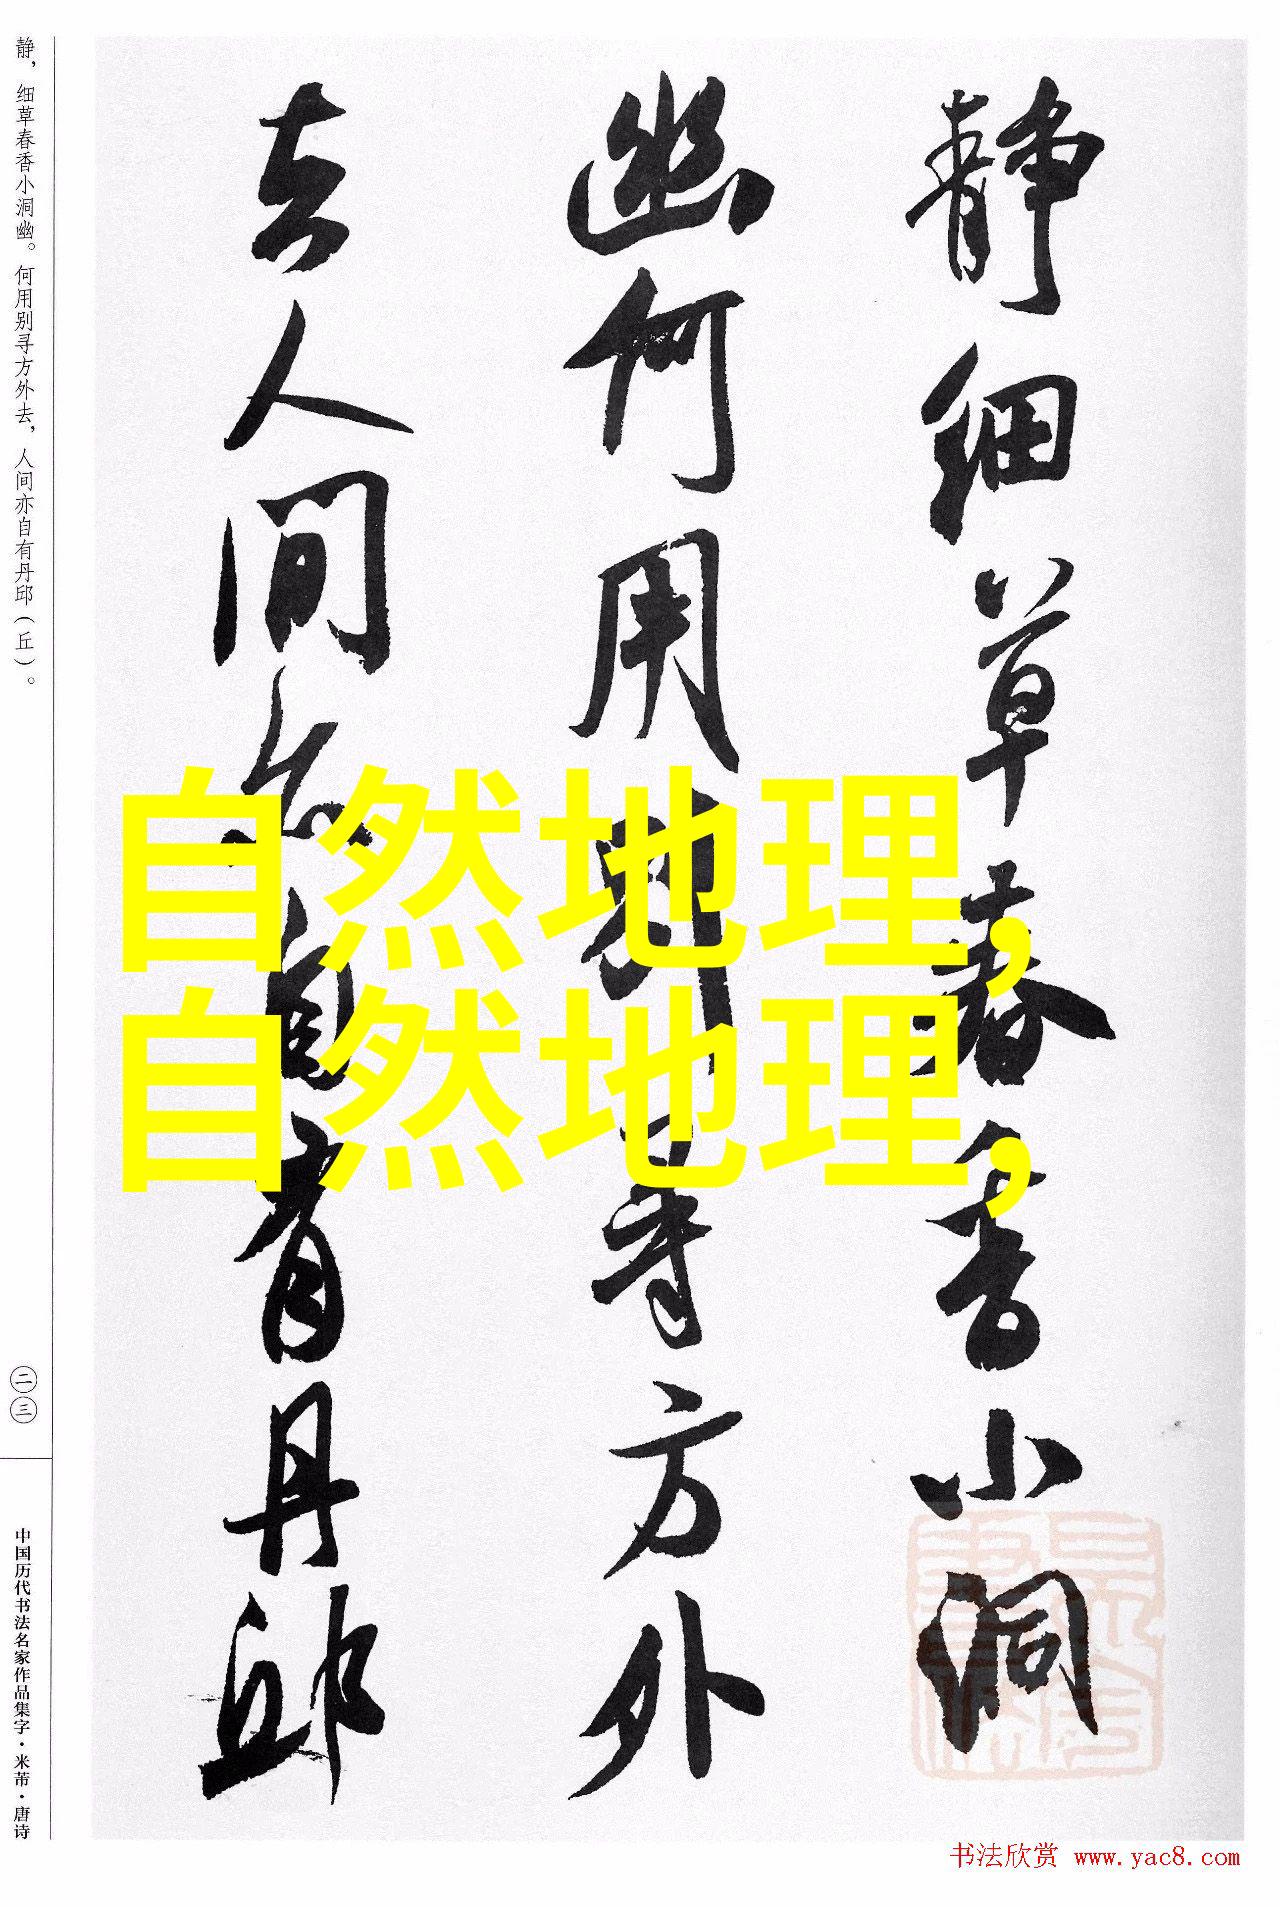 静，细草春香小洞幽。何用别寻方外去，人间亦自有丹邱（丘）。
二三
中国历代书法名家作品集字·米芾·唐诗
静细草春香小洞
幽何用别寻方外
去人间亦自有丹邱
自然地理,
自然地理,
书法欣赏 www.yac8.com